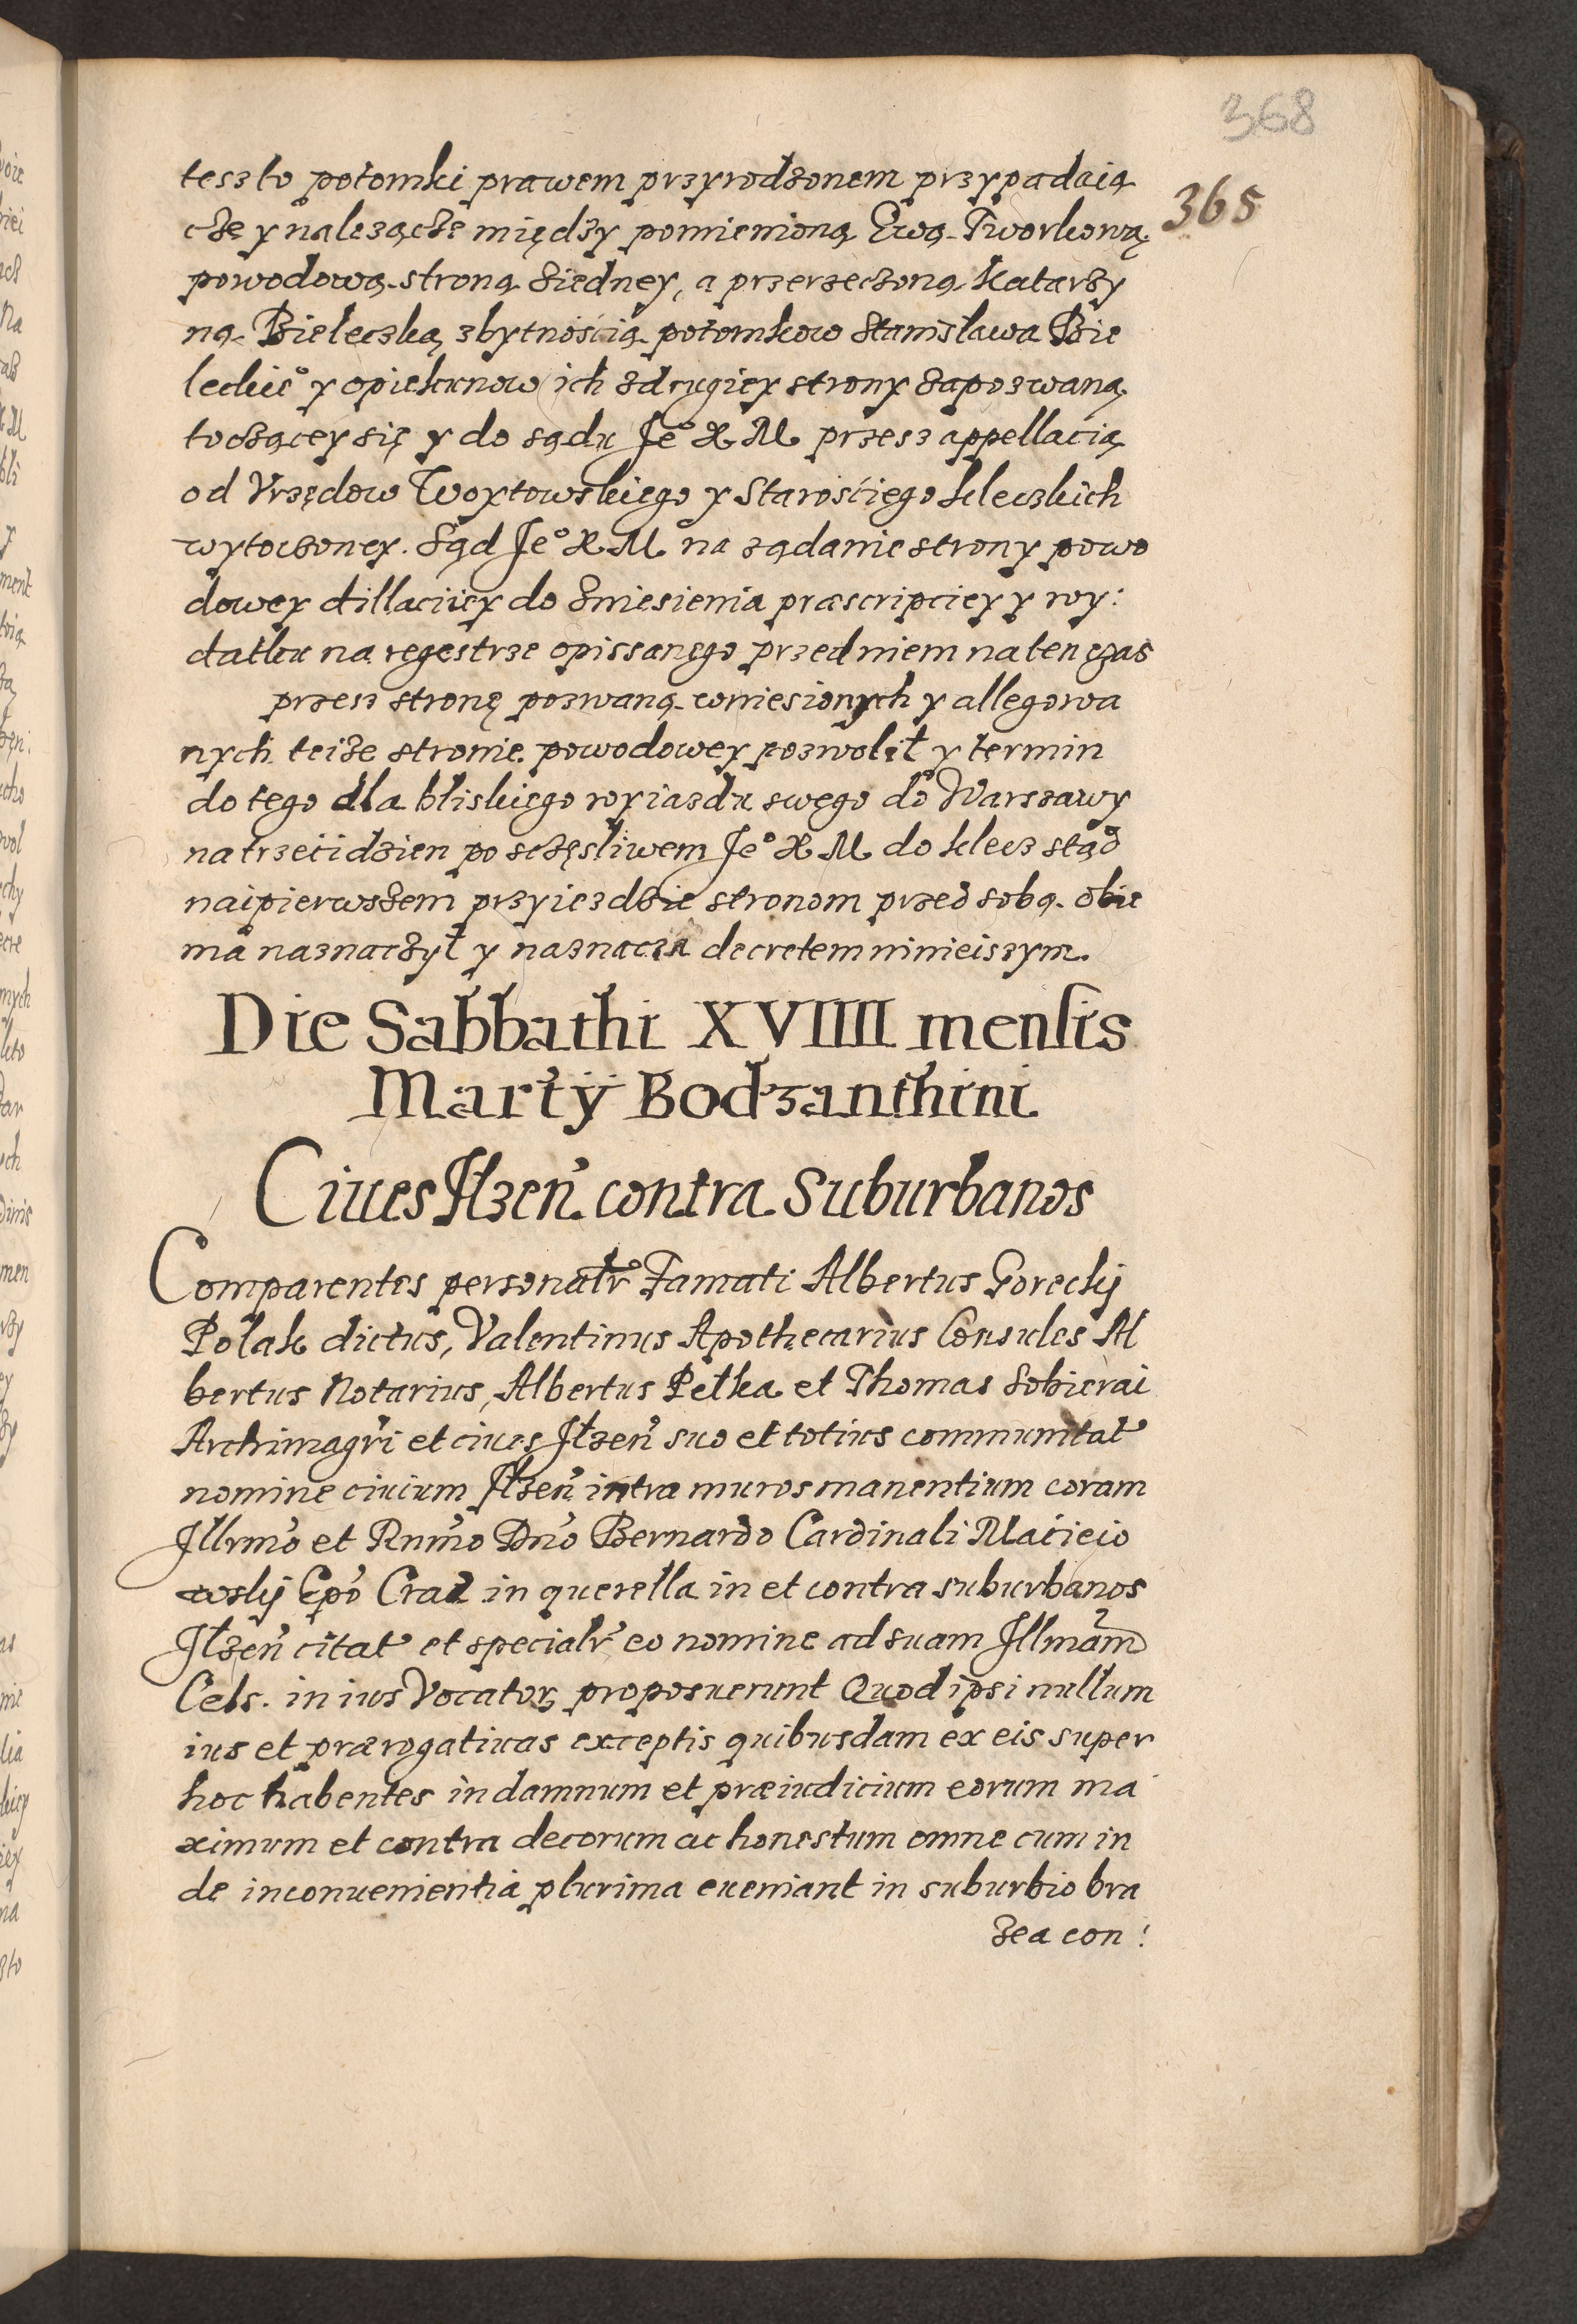 368
365
tesz to potomki prawem przyrodzonem przypadaią
cze y nalezącze między pomienioną Ewą Tworkową
powodową stroną ziedney, a przerzeczoną Katarzy
ną Bieleczką z bytnością potomkow Stanisława Bie
leckieº y opiekunow ich z drugiey strony zapozwaną
toczącey się y do sądu Jeº X M przesz appellacią
od Vrzędow Woytowskiego y Starościego kleczkich
wytoczoney. Sąd Jeº X M na ządanie strony powo
dowey dillaciiey do zniesienia præscripciey y wy:
datku na regestrze opissanego przed niem na ten czas
przesz stronę pozwaną wniesionych y allegowa
nych teize stronie powodowey pozwolił y termin
do tego dla bliskiego wyiazdu swego do Warszawy
na trzeci dzien po sczęsliwem Jeº X M do klecz stąd
naipierwszem przyiezdzie stronom przed sobą obie
ma naznaczył y naznacza decretem ninieiszym.
Die Sabbathi XVIIII mensis
Martÿ Bodzanthini
Ciues Ilzeñ contra Suburbanos
Comparentes personalr̃ Famati Albertus Goreckij
Polak dictus, Valentinus Apothecarius Consules Al
bertus Notarius, Albertus Pełka et Thomas Sobierai
Archimagr̃i et ciues Iłzeñ suo et totius communitat̃
nomine ciuium Iłzeñ intra muros manentium coram
Illrmõ et Rnmõ Dnõ Bernardo Cardinali Macieio
wskij Epõ Crac̃ in querella in et contra suburbanos
Iłzeñ citat̃ et specialr̃ eo nomine ad suam Illmãm
Cels. in ius Vocatoꝝ proposuerunt Quod ipsi nullum
ius et prærogatiuas exceptis quibusdam ex eis super
hoc habentes in damnum et præiudicium eorum ma
ximum et contra decorum ac honestum omne cum in
de inconuenientia plurima eueniant in suburbio bra
zea con: